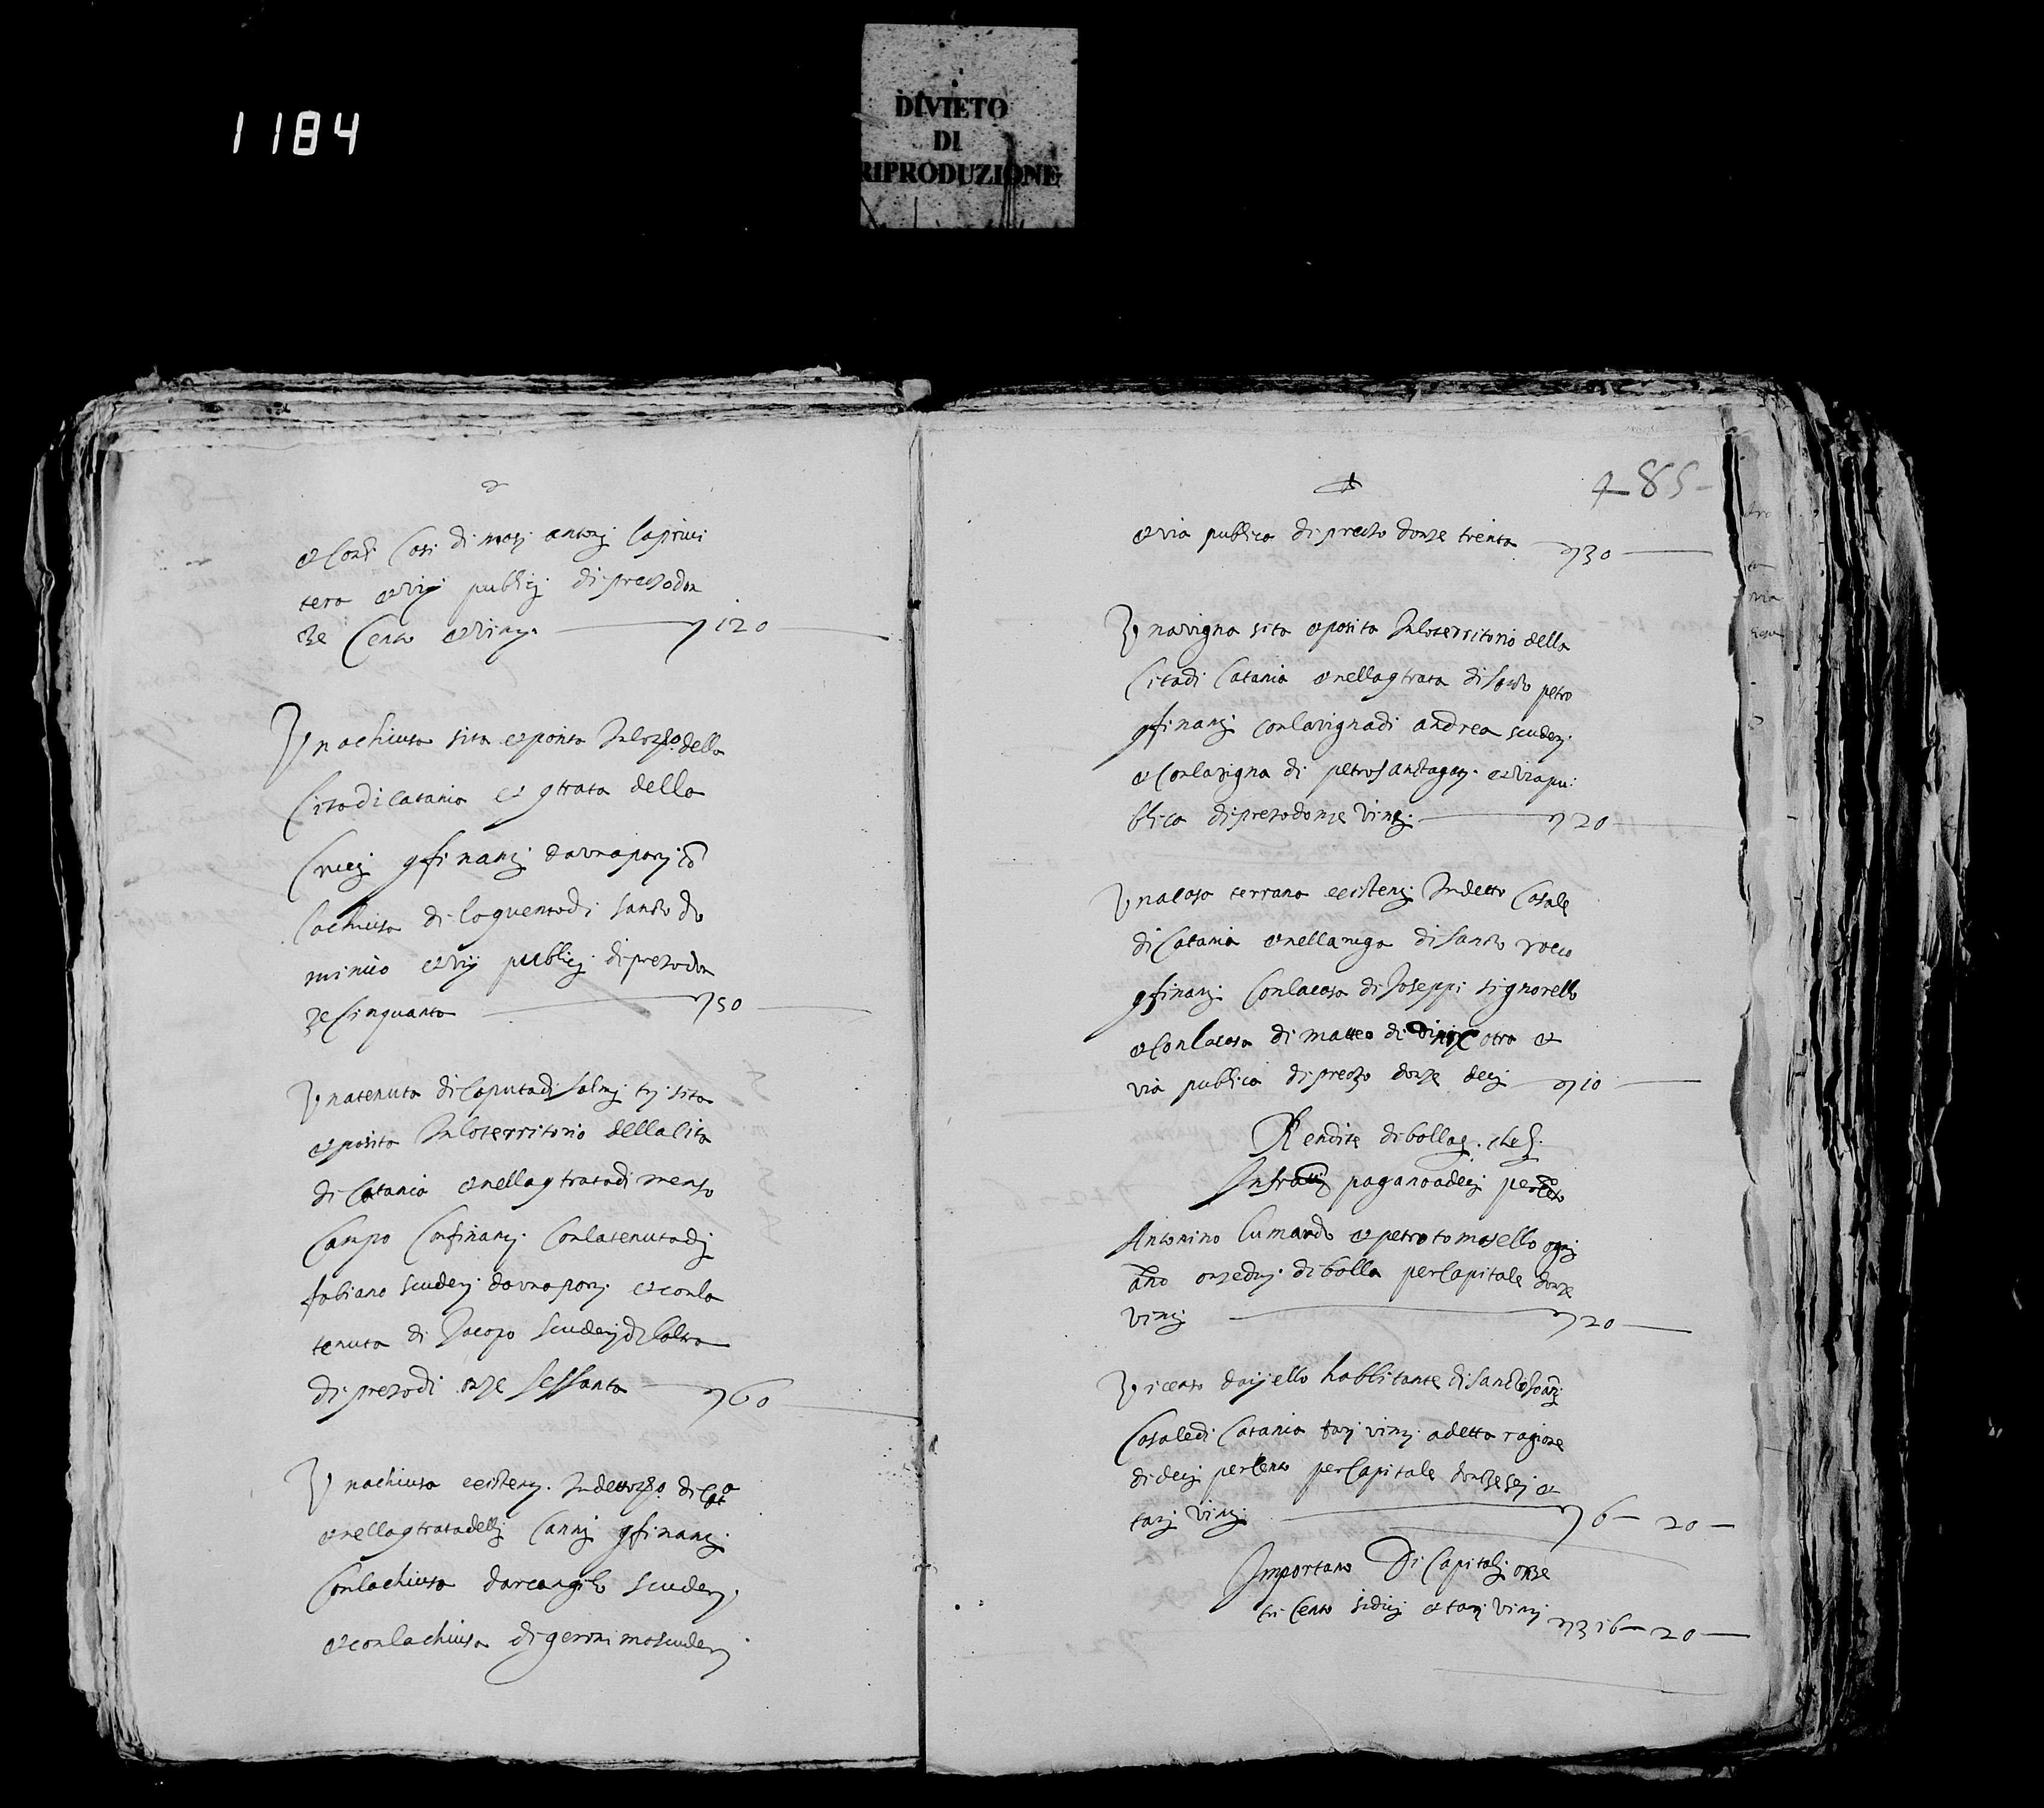 1184
DIVIETO
DI
RIPRODUZIONE
et con li Casi di antonj Caprini
tera et vij publicj di prezzo don
ze Cento et vinti 120
Una chiusa sita et posita In lo della
Cita di Catania et gtrata della
Crucj gfinanj da una parj cō
la chiusa di lo quento di santo do
minico et vij publicj di prezo don
ze Cinquanta 50
Una tenuta di saluj trj sita
et posita In lo territorio della Cita
di Catania et nella gtrata di menzo
Campo Confinanj Con la tenuta dj
fabiano scuderj da una parj et con la
tenuta di Jacopo scuderj
di prezo di onze sessanta 60
Una chiusa existenj In detto di
et nella gtrata dellj Cannj gfinanj
Con la chiusa d arcangilo scuderj
et con la chiusa di geronimo scuderj
485
et via publica di prezzo d onze trenta 30
Una vigna sita et posita In lo territorio della
Cita di Catania et nella gtrata di Santo petro
gfinanj con la vigna di andrea scuderj
et Con la vigna di petro Santagatj et via pu
blica di prezo d onze vintj 20
Una Casa terrana existenj In detto Casale
di Catania et nella ruga di Santo roco
gfinanj Con la Casa di Joseppi signorello
et Con la Casa di matteo di et
via publica di prezzo d onze decj 10
Rendite di bolla
pagano a decj per cēto
Antonino Cumando et petro tomasello ognj
āno onze duj di bolla per Capitale d onze
vintj 20
Vicenso habbitante di Santo
Casale di Catania tarj vintj a detta ragione
di decj per Cento per Capitale d onze sej et
tarj vintj 6 20
Importano Di Capitalj onze
tri Cento sidicj et tarj vintj 316 20